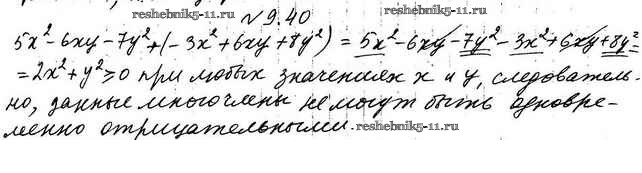 reshebnik5-11.ru № 9.40 reshebnik5-11.ru
5x² - 6xy - 7y² + (-3x² + 6xy + 8y²) = 5x² - 6xy - 7y² - 3x² + 6xy + 8y² =
= 2x² + y² ≥ 0 при любых значениях x и y, следователь-
но, данные многочлены не могут быть одновре-
менно отрицательными.
reshebnik5-11.ru